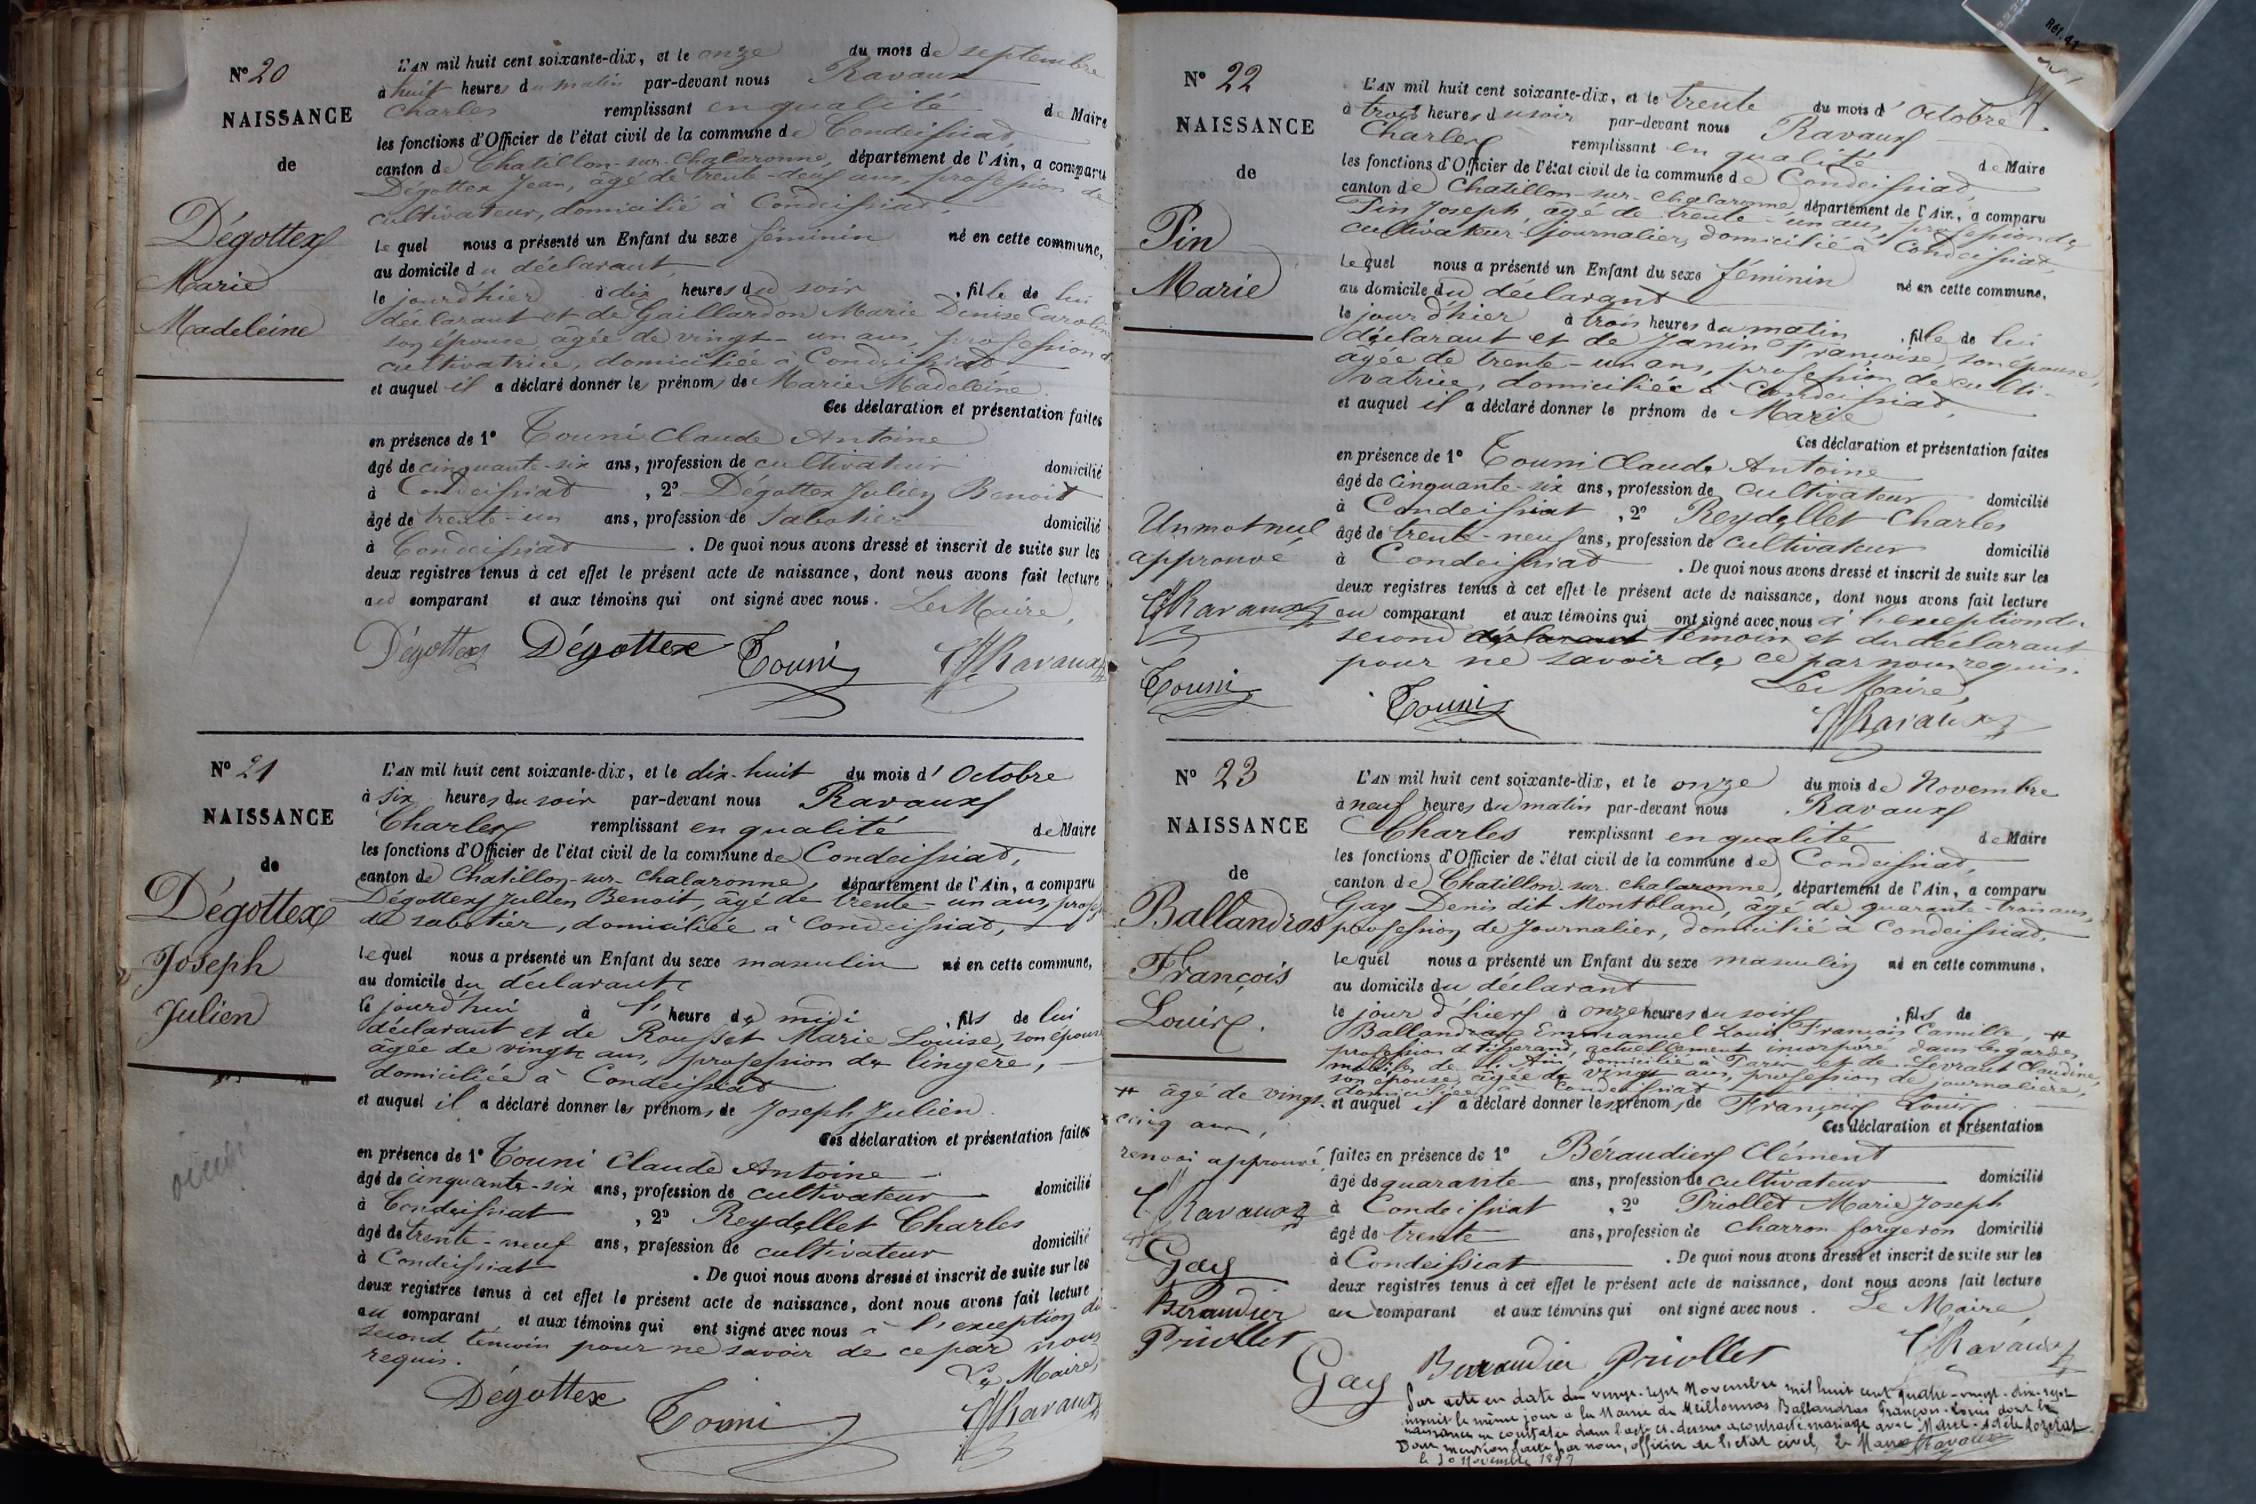 N° 20
NAISSANCE
de
Dégottex
Marie
Madeleine
L'AN mil huit cent soixante-dix, et le onze du mois de septembre
à huit heures du matin par-devant nous Ravaux
Charles remplissant en qualité de Maire
les fonctions d'Officier de l'état civil de la commune de Condeissiat,
canton de Chatillon-sur-Chalaronne, département de l'Ain, a comparu
Dégottex Jean, âgé de trente-deux ans, profession de
cultivateur, domicilié à Condeissiat,
lequel nous a présenté un Enfant du sexe féminin né en cette commune,
au domicile du déclarant
le jour d'hier à dix heures du soir, fille de lui
déclarant et de Gaillardon Marie Denise Caroline
son épouse âgée de vingt-un ans, profession de
cultivatrice, domiciliée à Condeissiat
et auquel il a déclaré donner les prénoms de Marie Madeleine.
Ces déclaration et présentation faites
en présence de 1° Touni Claude Antoine
âgé de cinquante-six ans, profession de cultivateur domicilié
à Condeissiat, 2° Dégottex Julien Benoit
âgé de trente-un ans, profession de sabotier domicilié
à Condeissiat. De quoi nous avons dressé et inscrit de suite sur les
deux registres tenus à cet effet le présent acte de naissance, dont nous avons fait lecture
au comparant et aux témoins qui ont signé avec nous. Le Maire,
Dégottex Dégottex Touni Ravaux
N° 21
NAISSANCE
de
Dégottex
Joseph
Julien
L'AN mil huit cent soixante-dix, et le dix-huit du mois d'Octobre
à six heures du soir par-devant nous Ravaux
Charles remplissant en qualité de Maire
les fonctions d'Officier de l'état civil de la commune de Condeissiat,
canton de Chatillon-sur-Chalaronne, département de l'Ain, a comparu
Dégottex Julien Benoit, âgé de trente-un ans, profes
de sabotier, domiciliée à Condeissiat,
lequel nous a présenté un Enfant du sexe masculin né en cette commune,
au domicile du déclarant
le jourd'hui à heure de midi, fils de lui
déclarant et de Rousset Marie Louise, son épouse
âgée de vingt ans, profession de lingère,
domiciliée à Condeissiat
et auquel il a déclaré donner les prénoms de Joseph Julien.
Ces déclaration et présentation faites
en présence de 1° Touni Claude Antoine
âgé de cinquante-six ans, profession de cultivateur domicilié
à Condeissiat, 2° Reydellet Charles
âgé de trente-neuf ans, profession de cultivateur domicilié
à Condeissiat. De quoi nous avons dressé et inscrit de suite sur les
deux registres tenus à cet effet le présent acte de naissance, dont nous avons fait lecture
au comparant et aux témoins qui ont signé avec nous à l'exception du
second témoin pour ne savoir de ce par nous
requis. Le Maire,
Dégottex Touni Ravaux
N° 22
NAISSANCE
de
Pin
Marie
Un mot nul
approuvé
Ravaux
Touni
L'AN mil huit cent soixante-dix, et le trente du mois d'Octobre
à trois heures du soir par-devant nous Ravaux
Charles remplissant en qualité de Maire
les fonctions d'Officier de l'état civil de la commune de Condeissiat,
canton de Chatillon-sur-Chalaronne, département de l'Ain, a comparu
Pin Joseph, âgé de trente-un ans, profession de
cultivateur-journalier, domicilié à Condeissiat,
lequel nous a présenté un Enfant du sexe féminin né en cette commune,
au domicile du déclarant
le jour d'hier à trois heures du matin, fille de lui
déclarant et de Janin Françoise, son épouse,
âgée de trente-un ans, profession de culti-
vatrice, domiciliée à Condeissiat,
et auquel il a déclaré donner le prénom de Marie
Ces déclaration et présentation faites
en présence de 1° Touni Claude Antoine
âgé de cinquante-six ans, profession de cultivateur domicilié
à Condeissiat, 2° Reydellet Charles
âgé de trente-neuf ans, profession de cultivateur domicilié
à Condeissiat. De quoi nous avons dressé et inscrit de suite sur les
deux registres tenus à cet effet le présent acte de naissance, dont nous avons fait lecture
au comparant et aux témoins qui ont signé avec nous à l'exception du
second déclarant témoin et du déclarant
pour ne savoir de ce par nous requis.
Le Maire,
Touni Ravaux
N° 23
NAISSANCE
de
Ballandras
François
Louis.
# âgé de vingt-
cinq ans,
renvoi approuvé
Ravaux
Gay
Beraudier
Priollet
L'AN mil huit cent soixante-dix, et le onze du mois de Novembre
à neuf heures du matin par-devant nous Ravaux
Charles remplissant en qualité de Maire
les fonctions d'Officier de l'état civil de la commune de Condeissiat,
canton de Chatillon-sur-Chalaronne, département de l'Ain, a comparu
Gay Denis dit Montbland, âgé de quarante-trois ans,
profession de Journalier, domicilié à Condeissiat,
lequel nous a présenté un Enfant du sexe masculin né en cette commune,
au domicile du déclarant
le jour d'hier à onze heures du soir, fils de
Ballandras Emmanuel Louis François Camille, #
profession de tisserand, actuellement incorporé dans les gardes
mobiles de l'Ain, domicilié à Paris et de Levraut Claudine,
son épouse, âgée de vingt ans, profession de journalière,
domiciliée à Condeissiat
et auquel il a déclaré donner les prénoms de François Louis
Ces déclaration et présentation
faites en présence de 1° Béraudier Clément
âgé de quarante ans, profession de cultivateur domicilié
à Condeissiat, 2° Priollet Marie Joseph
âgé de trente ans, profession de charron forgeron domicilié
à Condeissiat. De quoi nous avons dressé et inscrit de suite sur les
deux registres tenus à cet effet le présent acte de naissance, dont nous avons fait lecture
au comparant et aux témoins qui ont signé avec nous. Le Maire,
Gay Beraudier Priollet Ravaux
Par acte en date du vingt-sept Novembre mil huit cent quatre-vingt-dix-sept
inscrit le même jour à la Mairie de Meillonnas Ballandras François-Louis dont la
naissance est constatée dans l'acte ci-dessus a contracté mariage avec Marie
Dont mention faite par nous, officier de l'état civil, Le Maire Ravaux
le 30 Novembre 1897